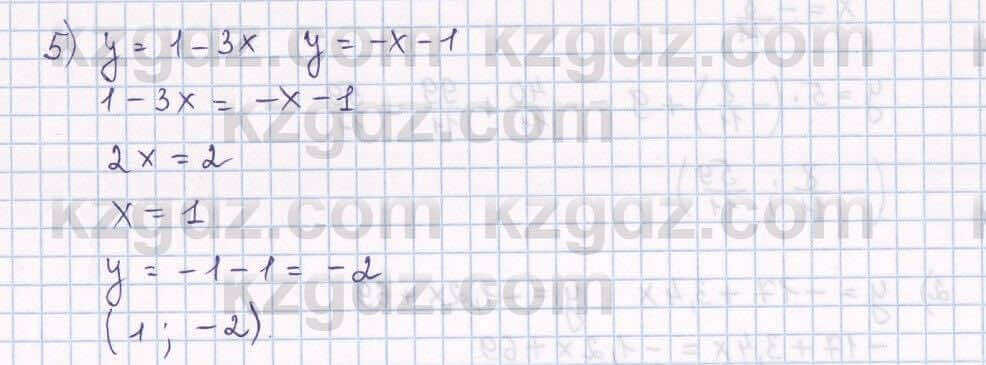 5) y = 1 - 3x   y = -x - 1
1 - 3x = -x - 1
2x = 2
x = 1
y = -1 - 1 = -2
(1; -2).
kzgdz.com kzgdz.com
kzgdz.com
kzgdz.com kzgdz.com
kzgdz.com